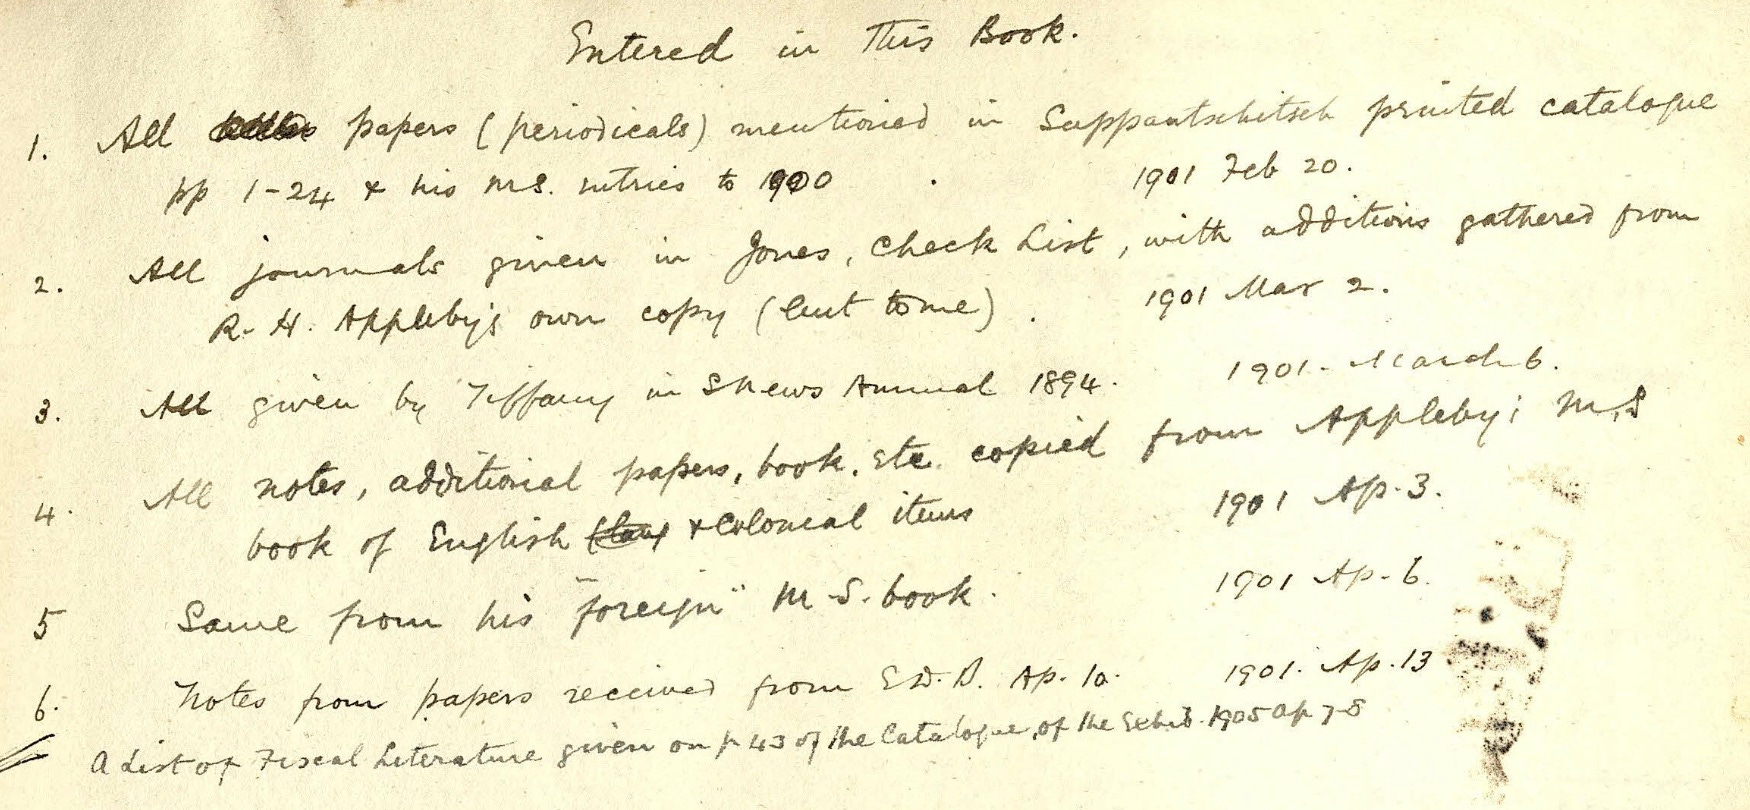 Entered in This Book.
1. All papers (periodicals) mentioned in Suppantschitsch printed catalogue
pp 1-24 & his MS. entries to 1900 . 1901 Feb 20.
2. All journals given in Jones, Check List, with additions gathered from
R. H. Appleby's own copy (lent to me) . 1901 Mar 2.
3. All given by Tiffany in Skews Annual 1894. 1901. March 6.
4. All notes, additional papers, book, etc. copied from Appleby's M.S
book of English & Colonial items 1901 Ap. 3.
5 Same from his "foreign" M.S. book. 1901 Ap. 6.
6. Notes from papers received from E.D.B. Ap. 10. 1901. Ap. 13
A List of Fiscal Literature given on p 43 of the Catalogue of the Exhib. 1905 Ap 7-8